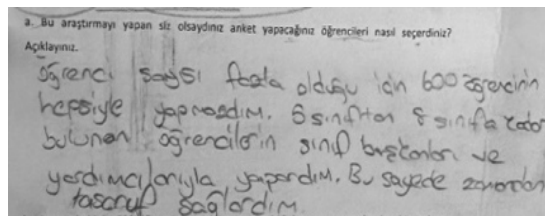 a. Bu araştırmayı yapan siz olsaydınız anket yapacağınız öğrencileri nasıl seçerdiniz?
Açıklayınız.
öğrenci sayısı fazla olduğu için 600 öğrencinin
hepsiyle yapmazdım. 5 sınıftan 8 sınıfa kadar
bulunan öğrencilerin sınıf başkanları ve
yardımcılarıyla yapardım. Bu sayede zamandan
tasarruf sağlardım.